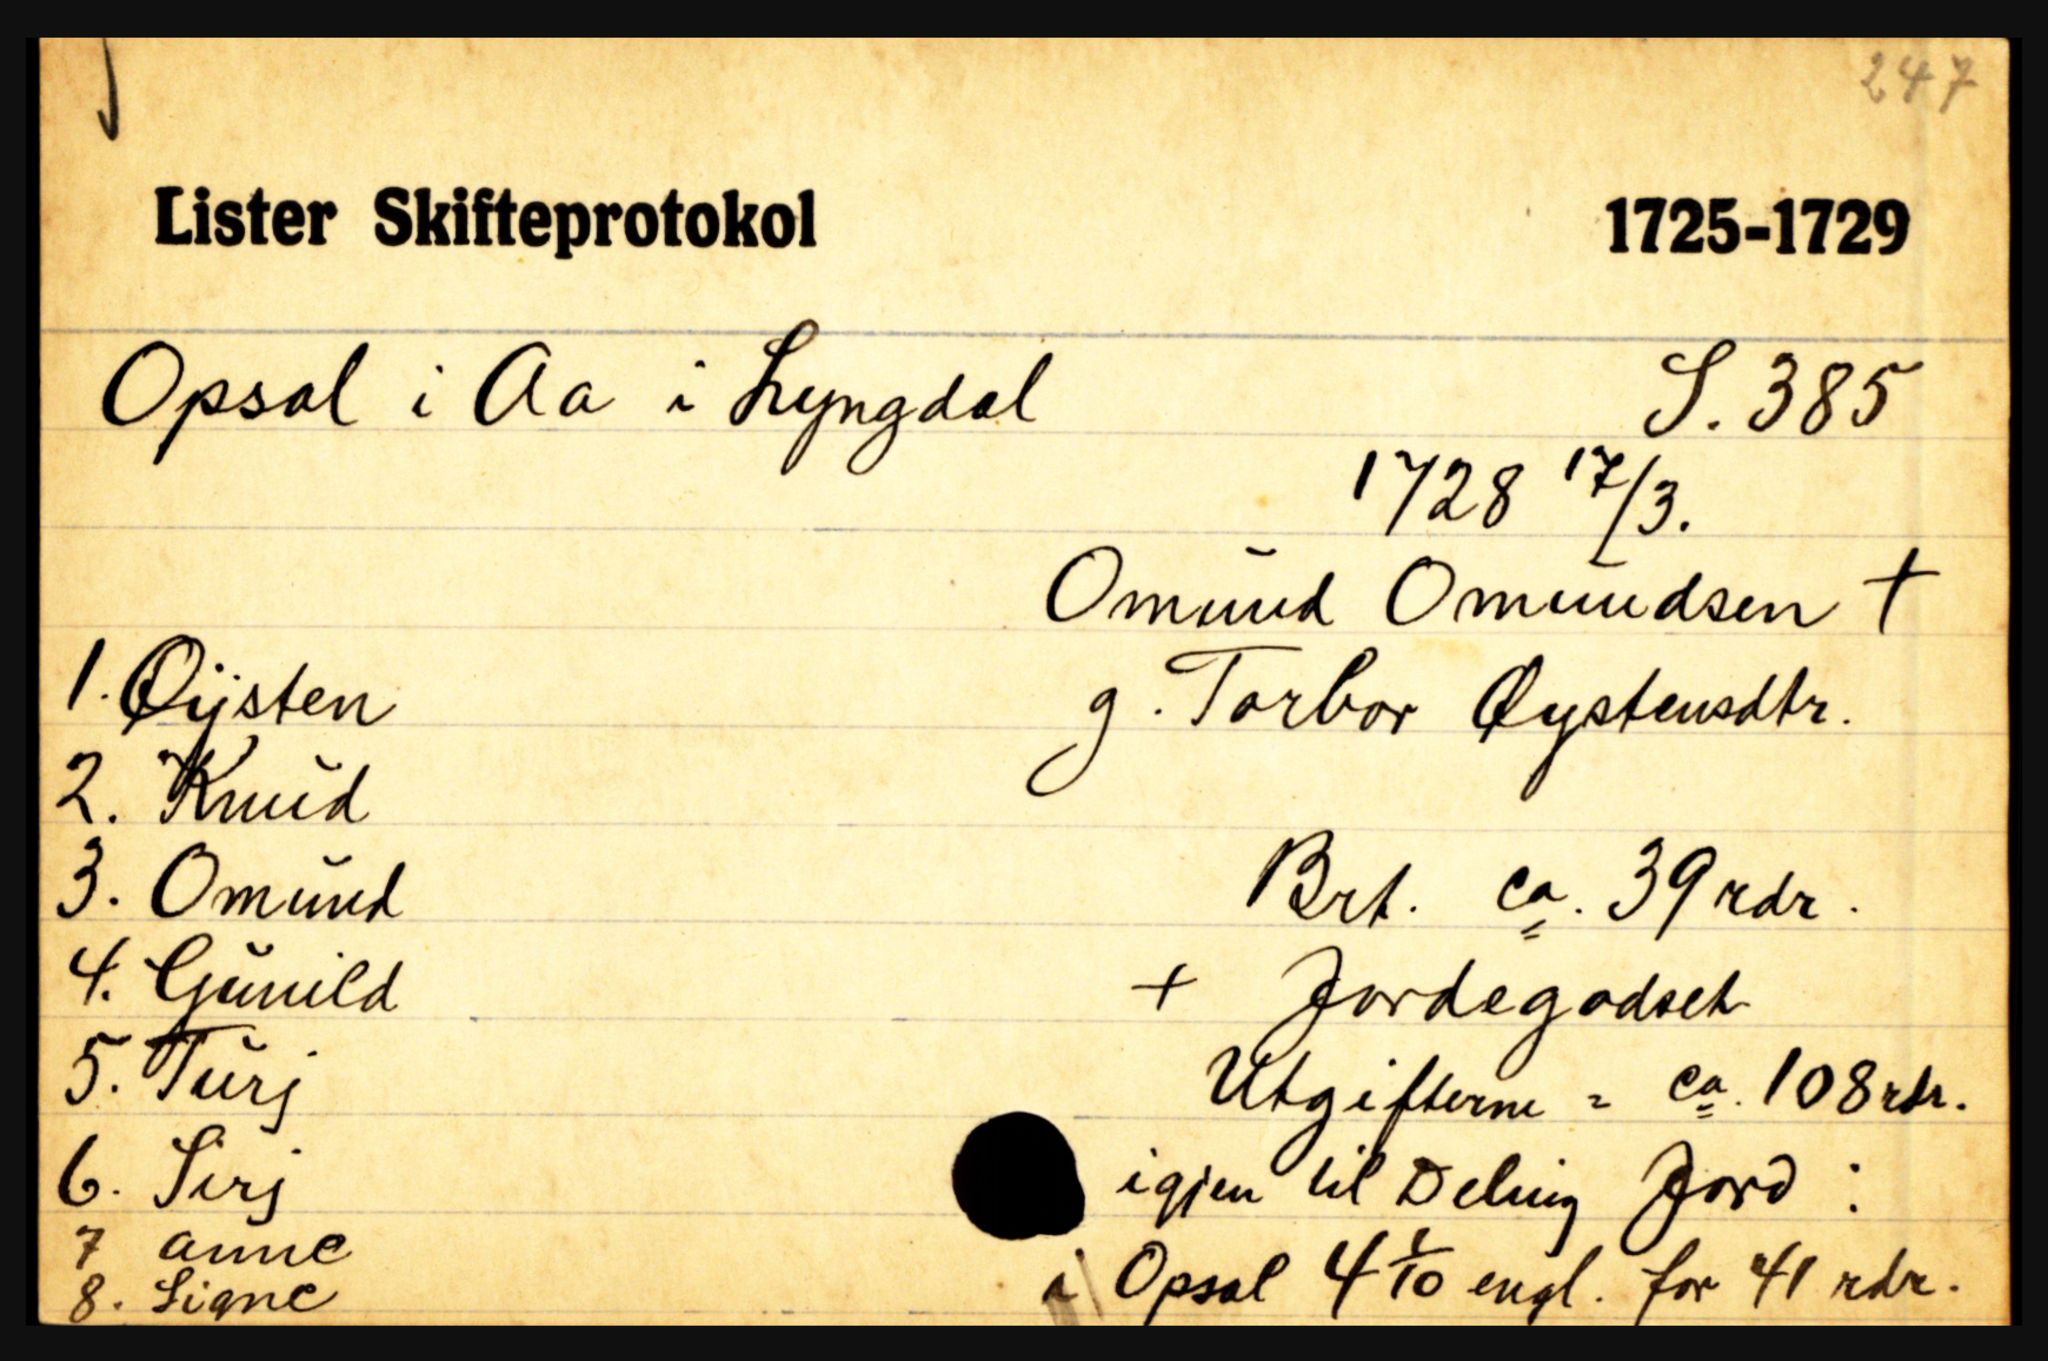 247
Lister Skifteprotokol 1725-1729
Opsal i Aa i Lyngdal S. 385
1728 17/3.
Omund Omundsen +
1. Øysten g. Torbor Øystensdtr.
2. Knud
3. Omund Brt. ca. 39 rdr.
4. Gunild + Jordegodset
5. Turj Utgifterne = ca. 108 rdr.
6. Sirj igjen til Deling Jord :
7 anne
8. Signe i Opsal 4 1/10 engl. for 41 rdr.